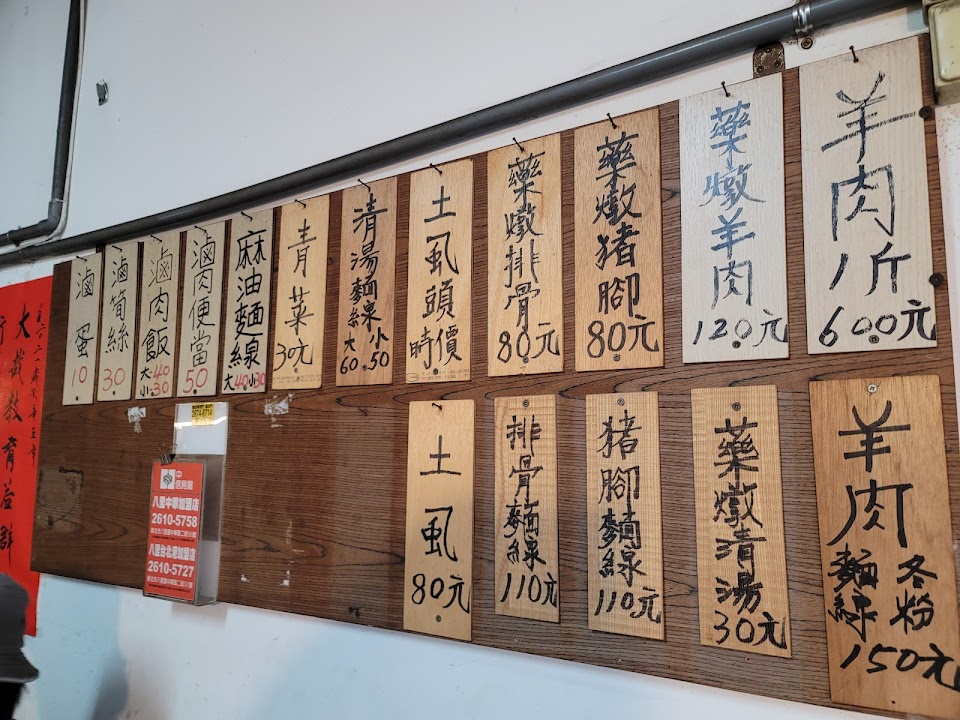 羊肉
1斤
600元
藥燉羊肉
120元
藥燉猪腳
80元
藥燉排骨
80元
土虱頭
時價
清湯麵線
大 小
60 50
青菜
30元
麻油麵線
大 小
40 30
滷肉便當
50
滷肉飯
大 40
小 30
滷筍絲
30
滷蛋
10
羊肉
麵線 冬粉
150元
藥燉清湯
30元
猪腳麵線
110元
排骨麵線
110元
土虱
80元
八里中華加盟店
2610-5758
八里台北港加盟店
2610-5727